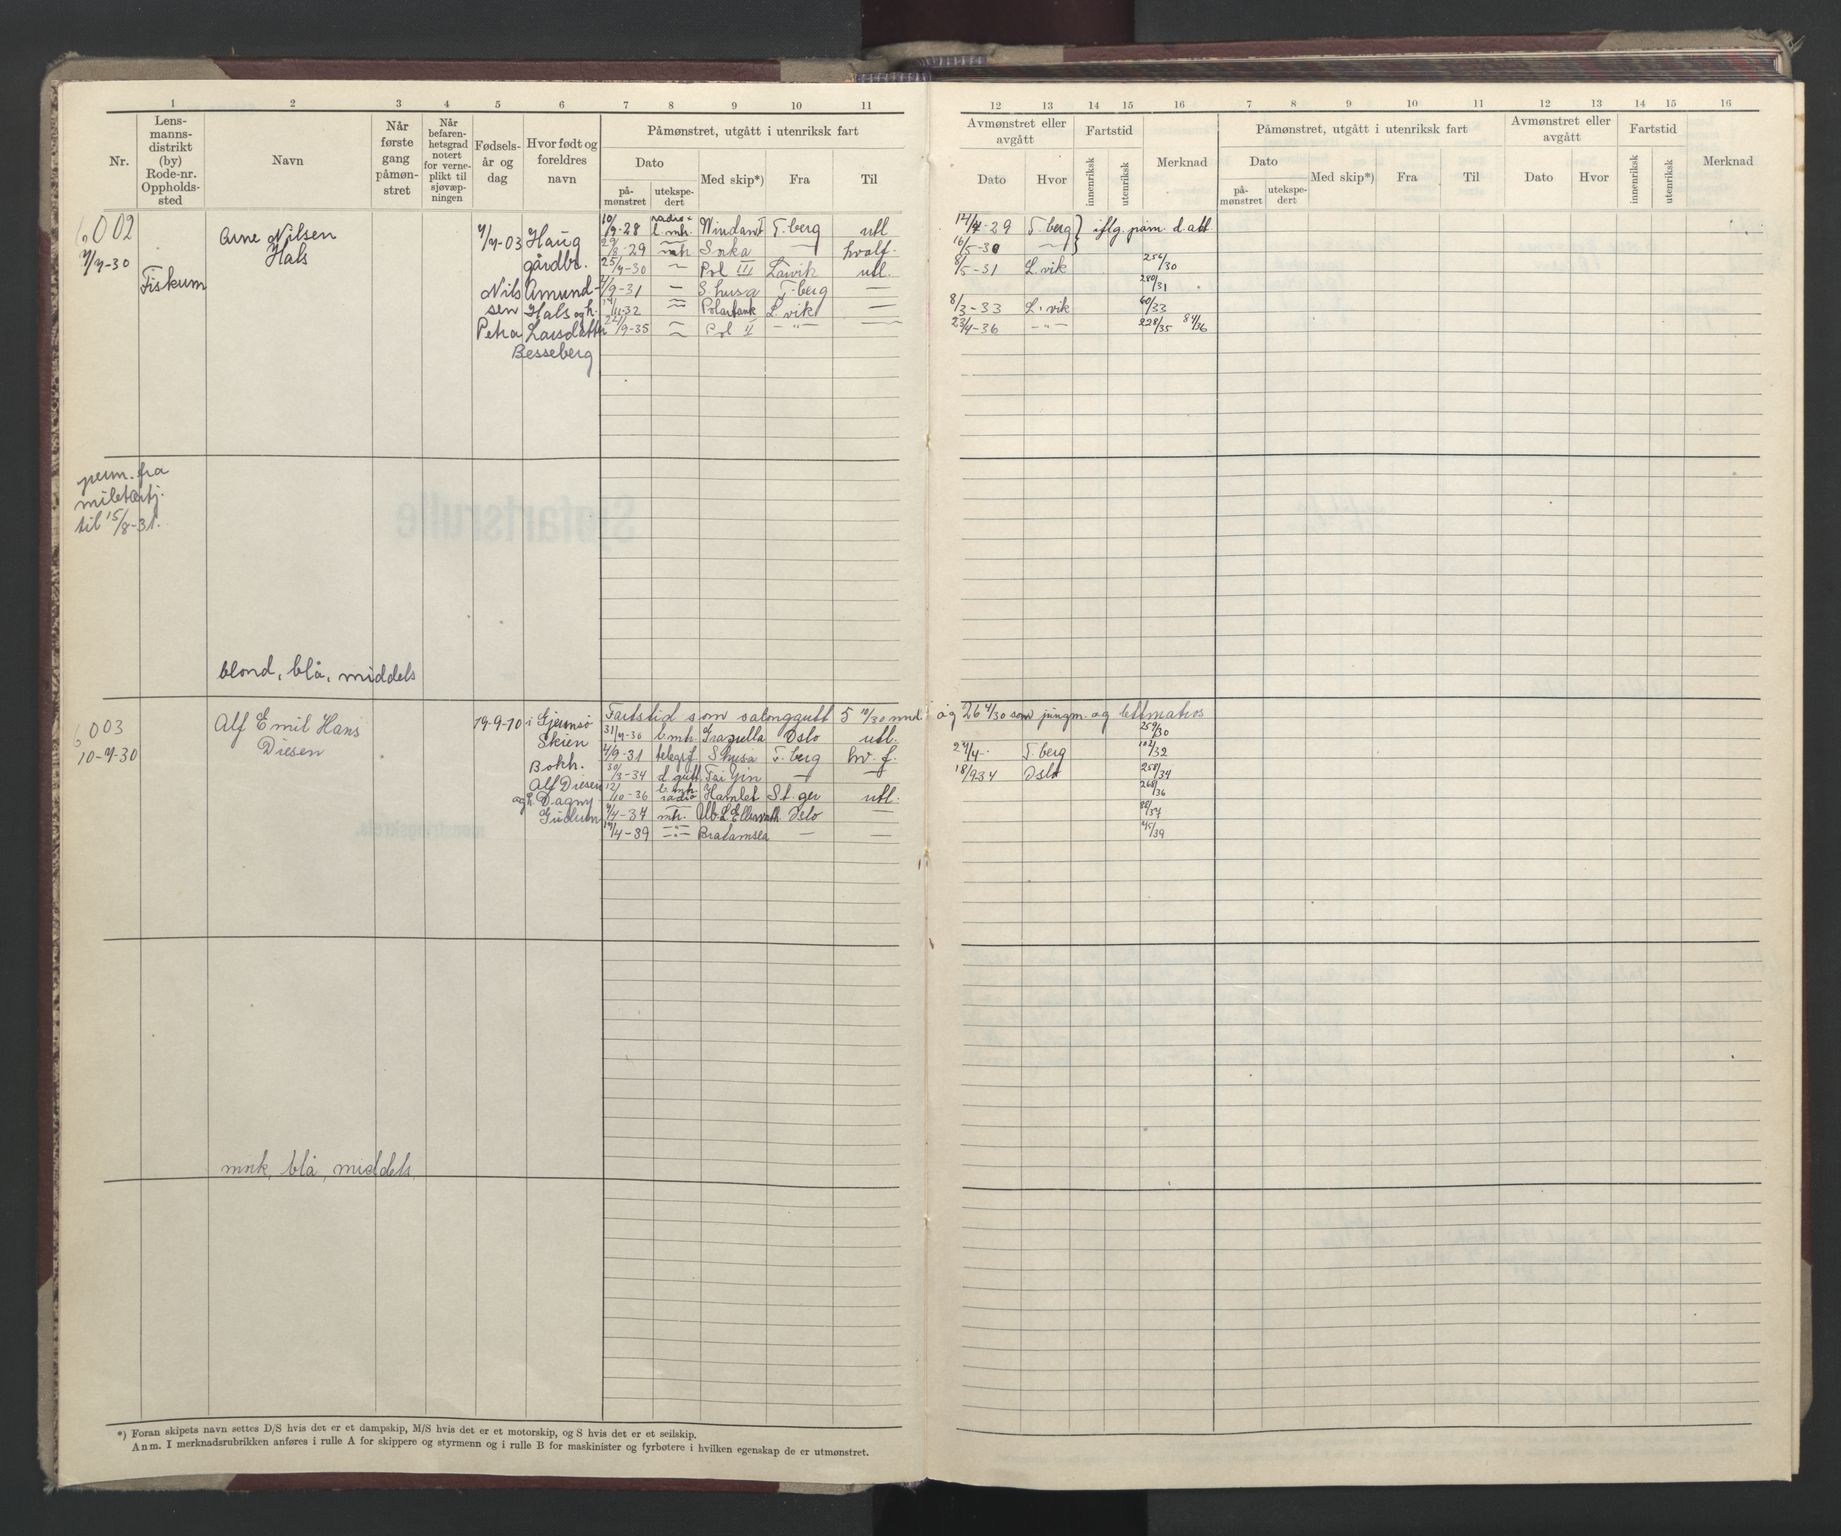 1 2 3 4 5 6 7 8 9 10 11
Nr.
Lens-
manns-
distrikt
(by)
Rode-nr.
Oppholds-
sted
Navn
Når
første
gang
påmøn-
stret
Når
befaren-
hetsgrad
notert
for verne-
plikt til
sjøvæp-
ningen
Fødsels-
år og
dag
Hvor født og
foreldres
navn
Påmønstret, utgått i utenriksk fart
Dato
på-
mønstret
utekspe-
dert
Med skip*)
Fra
Til
6002
7/7-30
Fiskum
Arne Nilsen
Hals
7/7-03 Haug
gårdbr.
Nils Amund-
sen Hals og h.
Petra Larsdatter
Besseberg
10/9-28 radio + b.mh. T-berg utl
29/8-29 mh. — hvalf.
25/7-30 — Pol III Larvik utl.
/9-31 — S. husa T-berg —
/11-32 Polartank L. vik —
/9-35 — Pol II —"— —
perm. fra
militærtj.
til 15/8-31.
blond, blå, middels
6003
10-7-30
Alf Emil Hans
Diesen
19-9-10 i Gjemsø
Skien
Bokh.
Alf Diesen
og h. Dagny
Gudrun
Fartstid som salonggutt 5 10/30 mnd. og 26 4/30 som jungm. og lettmatros
31/7-30 b.mh. Graziella Oslo utl.
4/9-31 telegrf. S husa T. berg hv. f.
30/3-34 d. gutt Tai Yin — —
12/10-36 b. mh. radio Hamlet St. ger utl.
/4-37 mh. Oslo —
/4-39 —:— — —
mørk, blå, middels
*) Foran skipets navn settes D/S hvis det er et dampskip, M/S hvis det er et motorskip, og S hvis det er et seilskip.
Anm. I merknadsrubrikken anføres i rulle A for skippere og styrmenn og i rulle B for maskinister og fyrbøtere i hvilken egenskap de er utmønstret.
12 13 14 15 16 7 8 9 10 11 12 13 14 15 16
Avmønstret eller
avgått
Dato
Hvor
Fartstid
innenriksk
utenriksk
Merknad
Påmønstret, utgått i utenriksk fart
Dato
på-
mønstret
utekspe-
dert
Med skip*)
Fra
Til
Avmønstret eller
avgått
Dato
Hvor
Fartstid
innenriksk
utenriksk
Merknad
12/4-29 T-berg } iflg. påm. d. att.
16/5-30 —"—
8/5-31 L. vik 256/30
280/31
8/3-33 L. vik 60/33
23/4-36 —"— 228/35 84/36
259/30
27/4-. T. berg 102/32
18/9-34 Oslo 258/34
268/36
88/37
45/39